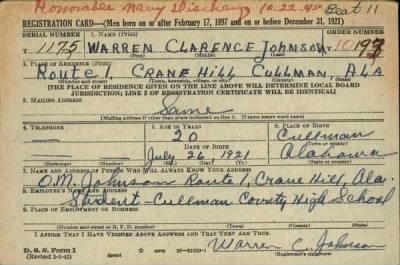 Honorable Navy Discharge 10-22-45 Beat 11
REGISTRATION CARD—(Men born on or after February 17, 1897 and on or before December 31, 1921)
SERIAL NUMBER 1. NAME (Print) ORDER NUMBER
T 1175 WARREN CLARENCE JOHNSON 10193
(First) (Middle) (Last)
2. PLACE OF RESIDENCE (Print)
Route 1, CRANE HILL CULLMAN, ALA
(Number and street) (Town, township, village, or city) (County) (State)
[THE PLACE OF RESIDENCE GIVEN ON THE LINE ABOVE WILL DETERMINE LOCAL BOARD
JURISDICTION; LINE 2 OF REGISTRATION CERTIFICATE WILL BE IDENTICAL]
3. MAILING ADDRESS
Same
[Mailing address if other than place indicated on line 2. If same insert word same]
4. TELEPHONE 5. AGE IN YEARS 6. PLACE OF BIRTH
20 Cullman
DATE OF BIRTH (Town or county)
July 26, 1921 Alabama
(Exchange) (Number) (Mo.) (Day) (Yr.) (State or country)
7. NAME AND ADDRESS OF PERSON WHO WILL ALWAYS KNOW YOUR ADDRESS
O.M. Johnson Route 1, Crane Hill, Ala.
8. EMPLOYER'S NAME AND ADDRESS
Student-Cullman County High School
9. PLACE OF EMPLOYMENT OR BUSINESS
(Number and street or R. F. D. number) (Town) (County) (State)
I AFFIRM THAT I HAVE VERIFIED ABOVE ANSWERS AND THAT THEY ARE TRUE.
D. S. S. Form 1 GPO 16—21630-1 Warren C. Johnson
(Revised 1-5-42) (Registrant's signature)